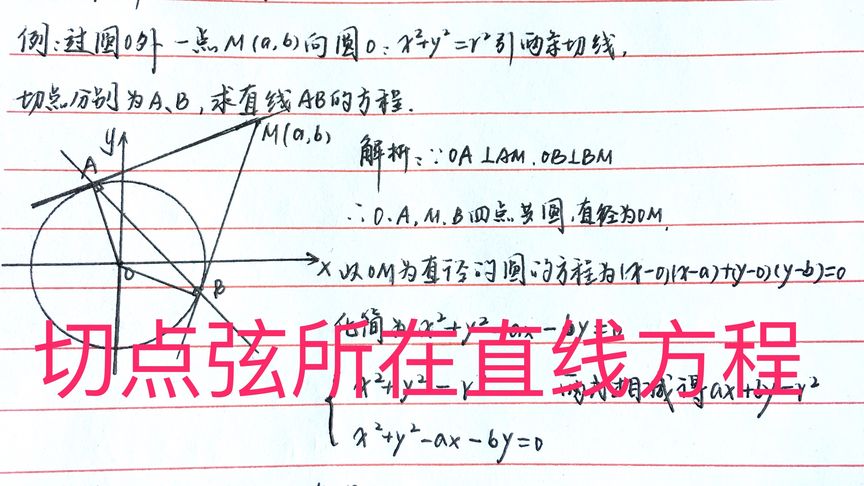 例:过圆O外一点M(a,b)向圆O:x²+y²=r²引两条切线,
切点分别为A、B,求直线AB的方程.
y
A
M(a,b)
O
B
x
解析:∵OA⊥AM.OB⊥BM
∴O.A,M.B四点共圆,直径为OM,
以OM为直径的圆的方程为(x-0)(x-a)+(y-0)(y-b)=0
化简为x²+y²-ax-by=0
切点弦所在直线方程
x²+y²=r 两式相减得ax+by=r²
x²+y²-ax-by=0